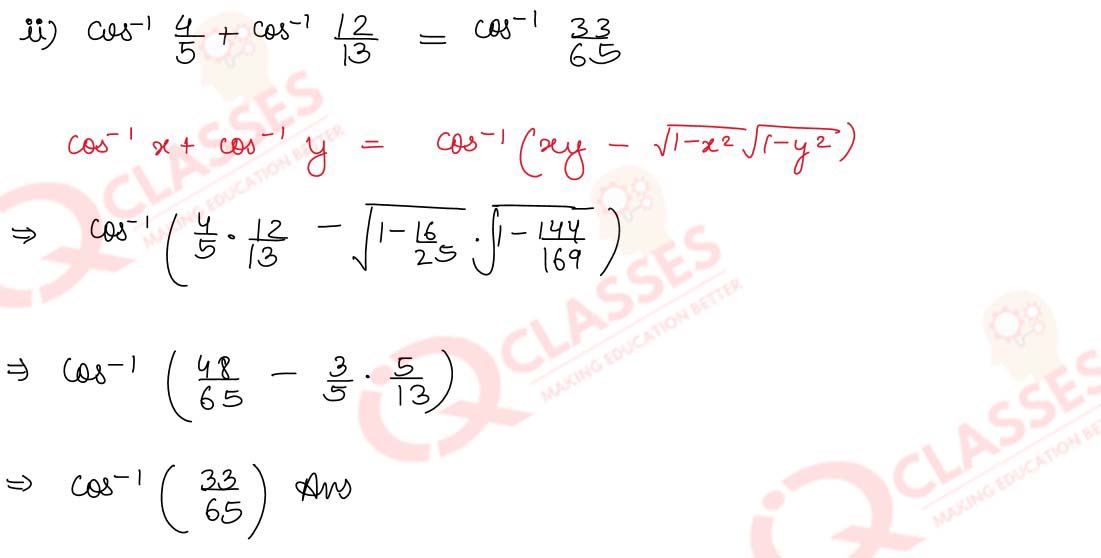 ii) cos⁻¹ 4/5 + cos⁻¹ 12/13 = cos⁻¹ 33/65
cos⁻¹ x + cos⁻¹ y = cos⁻¹ (xy − √1−x² √1−y²)
⇒ cos⁻¹ (4/5 · 12/13 − √1−16/25 · √1−144/169)
⇒ cos⁻¹ (48/65 − 3/5 · 5/13)
⇒ cos⁻¹ (33/65) Ans
IQ CLASSES
MAKING EDUCATION BETTER
IQ CLASSES
MAKING EDUCATION BETTER
IQ CLASSES
MAKING EDUCATION BE